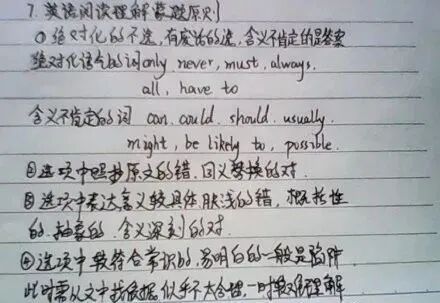 7. 英语阅读理解蒙题原则
①绝对化的不选,有废话的选,含义不肯定的是答案
绝对化语气的词only never, must, always.
all, have to
含义不肯定的词 can. could. should. usually.
might, be likely to, possible.
②选项中照抄原文的错.同义替换的对.
③选项中表达意义较具体,肤浅的错,概括性
的.抽象的.含义深刻的对.
④选项中较符合常识的,易明白的一般是陷阱
此时需从文中找依据.似乎不大合理,一时较难理解